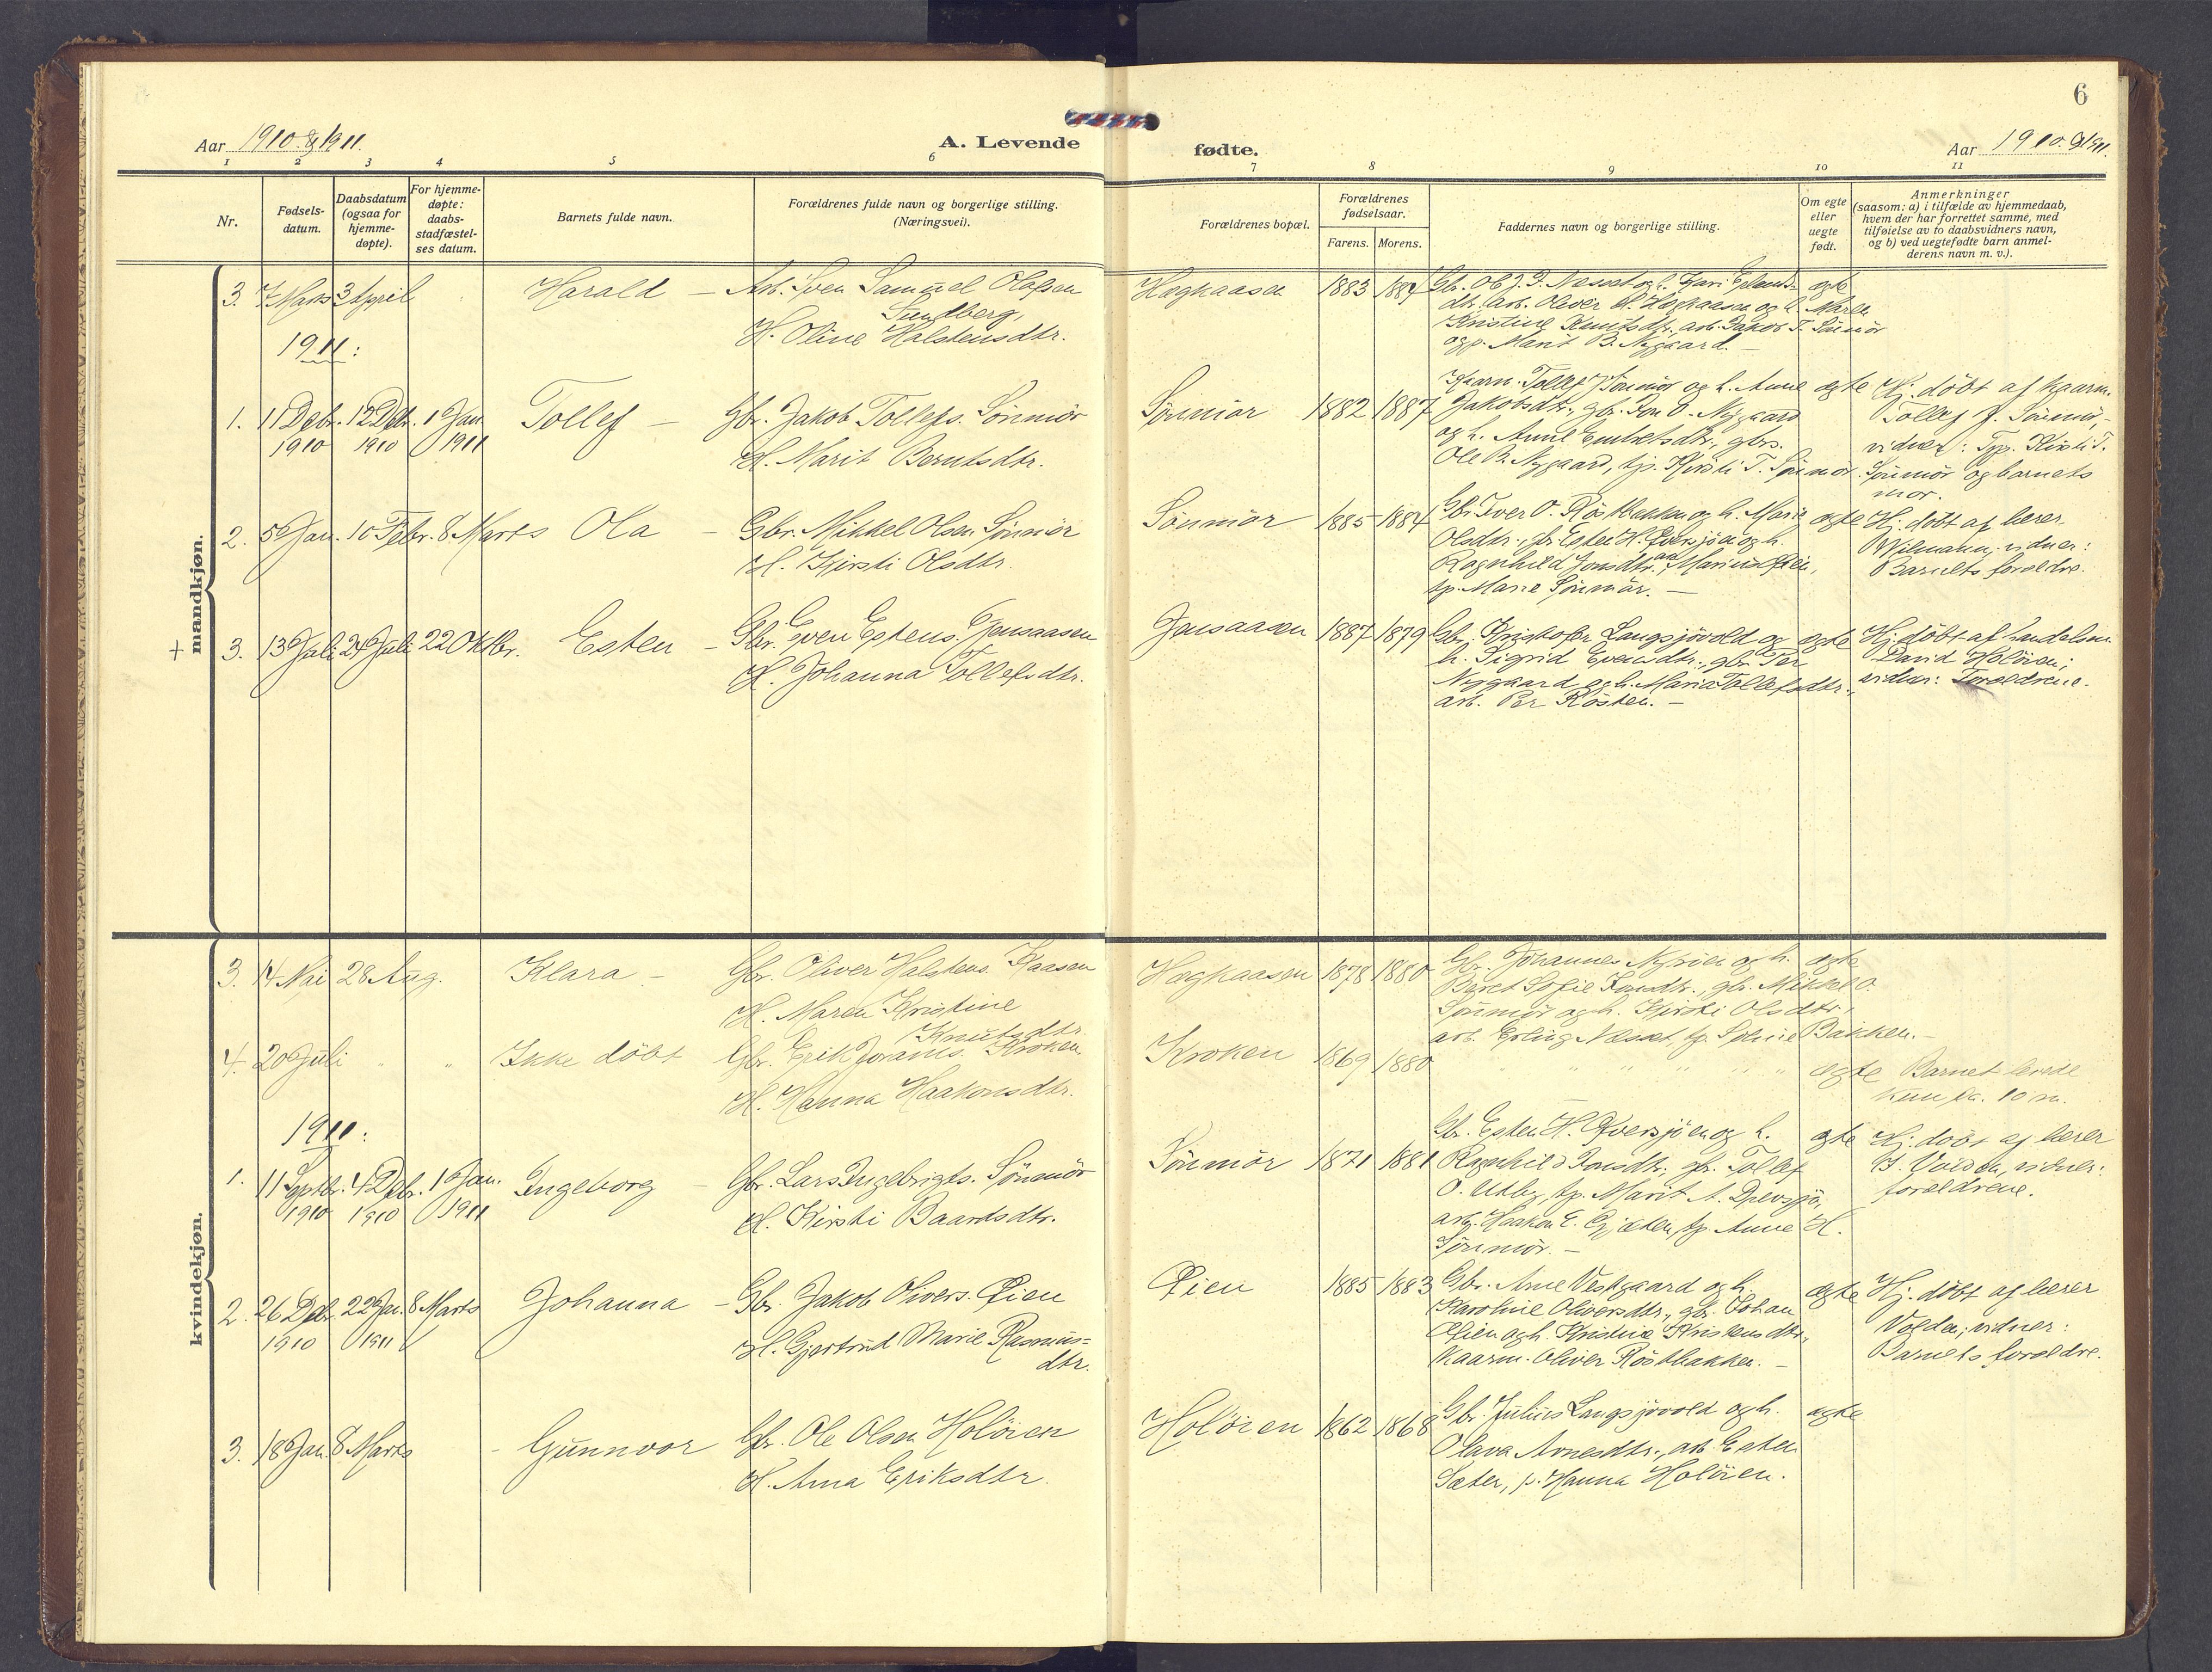 6
Aar 1910 & 1911.
A. Levende
fødte.
Aar 1910 & 1911.
1 2 3 4 5 6 7 8 9 10 11
Nr.
Fødsels-
datum.
Daabsdatum
(ogsaa for
hjemme-
døpte).
For hjemme-
døpte:
daabs-
stadfæstel-
ses datum.
Barnets fulde navn.
Forældrenes fulde navn og borgerlige stilling.
(Næringsvei).
Forældrenes bopæl.
Forældrenes
fødselsaar.
Farens. Morens.
Faddernes navn og borgerlige stilling.
Om egte
eller
uegte
født.
Anmerkninger
(saasom: a) i tilfælde av hjemmedaab,
hvem der har forrettet samme, med
tilføielse av to daabsvidners navn,
og b) ved uegtefødte barn anmel-
derens navn m. v.).
mandkjøn.
3. 7 Mars 3 April Harald – Arb. Sven Samuel Olafsen
Sundberg,
H. Oline Halstensdtr.
Høgkaasen 1883 1887 egte
arb. Oliver H. Høgkaasen og h. Maren
Kristine Knutsdtr., arb. Jakob T. Sönmör
og p. Marit B. Nygaard. –
1911:
1. 11 Debr. 1910 12 Debr. 1910 1 Jan 1911 Tollef – Gbr. Jakob Tollefs. Sönmör
H. Marit Berntsdtr.
Sönmör 1882 1887 Kaarm. Tollef J. Sönmör og h. Anne egte
Jakobsdtr., gbr. Jon O. Nygaard
og h. Anne Embretsdtr., gbrs.
Ole B. Nygaard, tp. Kirsti T. Sönmör.
Hj. döbt af kaarm.
Tollef J. Sönmör,
vidner: Tp. Kirsti T.
Sönmör og barnets
mor.
2. 5 Jan. 10 Febr. 8 Marts Ola – Gbr. Mikkel Olsen Sönmör
H. Kirsti Olsdtr.
Sönmör 1885 1884 Gbr. Iver O. Röstbakken og h. Marie egte
Olsdtr., gbr. Esten H. Øversjöen og h.
Ragnhild Jonsdtr., arb. Marius Øien,
tp. Marie Sönmör. –
Hj. döbt af lærer
Wilmann, vidner:
Barnets forældre.
+ 3. 13 Juli 24 Juli 22 Oktbr. Esten – Gbr. Even Estens. Jensaasen
H. Johanna Tollefsdtr.
Jensaasen 1887 1879 Gbr. Kristofer Langsjövold og egte
h. Sigrid Evensdtr., gbr. Per
Nygaard og h. Maria Tollefsdtr.,
arb. Per Rösten. –
Hj. döbt af handelsm.
David Holöien;
vidner: Forældrene.
kvindekjøn.
3. 14 Mai 28 Aug. Klara – Gbr. Oliver Halstens. Kaasen
H. Maren Kristine
Knutsdtr.
Høgkaasen 1878 1880 Gbr. Johannes Nyröen og h. egte
Beret Sofie Jonsdtr., gbr. Mikkel O.
Sönmör og h. Kirsti Olsdtr.,
arb. Erling Næsset, tp. Bakken. –
4. 20 Juli " " Ikke döbt Gbr. Erik Jorams. Kroken
H. Hanna Haakonsdtr.
Kroken 1869 1880 " " " " " " egte Barnet levede
kun ca. 10 m.
1911:
1. 11 Septbr. 1910 4 Debr. 1910 1 Jan. 1911 Ingeborg – Gbr. Lars Ingebrigts. Sönmör
H. Kirsti Baardsdtr.
Sönmör 1871 1881 Gbr. Esten H. Øversjöen og h. egte
Ragnhild Jonsdtr., gbr. Tollef
O. Utby, tp. Marit A. Drevsjö,
arb. Haakon E. Gjæten, tp. Anne H.
Sönmör. –
Hj. döbt af lærer
Volden, vidner:
forældrene.
2. 26 Debr. 1910 22 Jan. 1911 8 Marts Johanna – Gbr. Jakob Olivers. Øien
H. Gjertrud Marie Rasmus-
dtr.
Øien 1885 1883 Gbr. Arne Vestgaard og h. egte
Karoline Oliversdtr., gbr. Johan
Øien og h. Kristine Kristensdtr.,
Kaarm. Oliver Röstbakken. –
Hj. döbt af lærer
Volden; vidner:
Barnets forældre.
3. 18 Jan. 8 Marts - Gunnvor Gbr. Ole Olsen Holöien
H. Anna Eriksdtr.
Holöien 1862 1868 Gbr. Julius Langsjövold og h. egte
Olava Arnesdtr., arb. Esten
Sæter, p. Hanna Holöien.